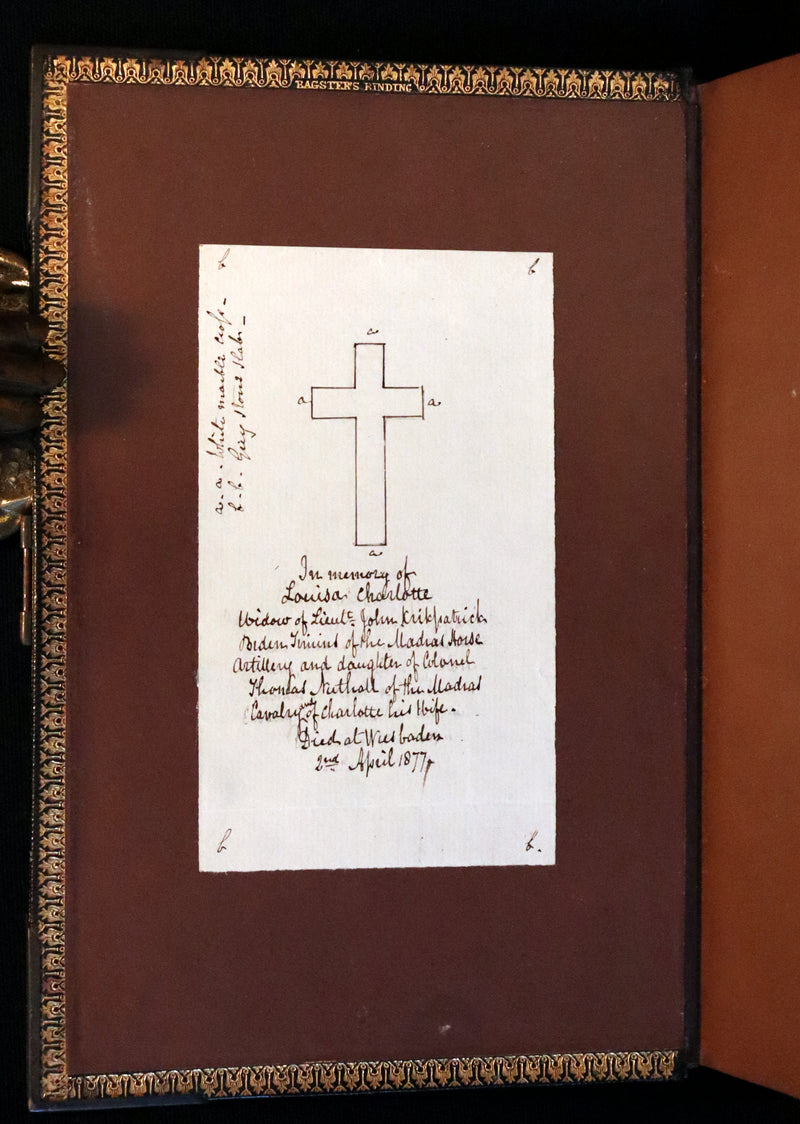 BAGSTER'S BINDING
b
b
a
a
a
a
a-a- White marble Cross-
b-b- Grey Stone Slab-
In memory of
Louisa Charlotte
Widow of Lieut. John Kirkpatrick
Biden Timins of the Madras Horse
Artillery and daughter of Colonel
Thomas Nuthall of the Madras
Cavalry and of Charlotte his Wife.
Died at Wiesbaden
2nd April 1877
b
b.